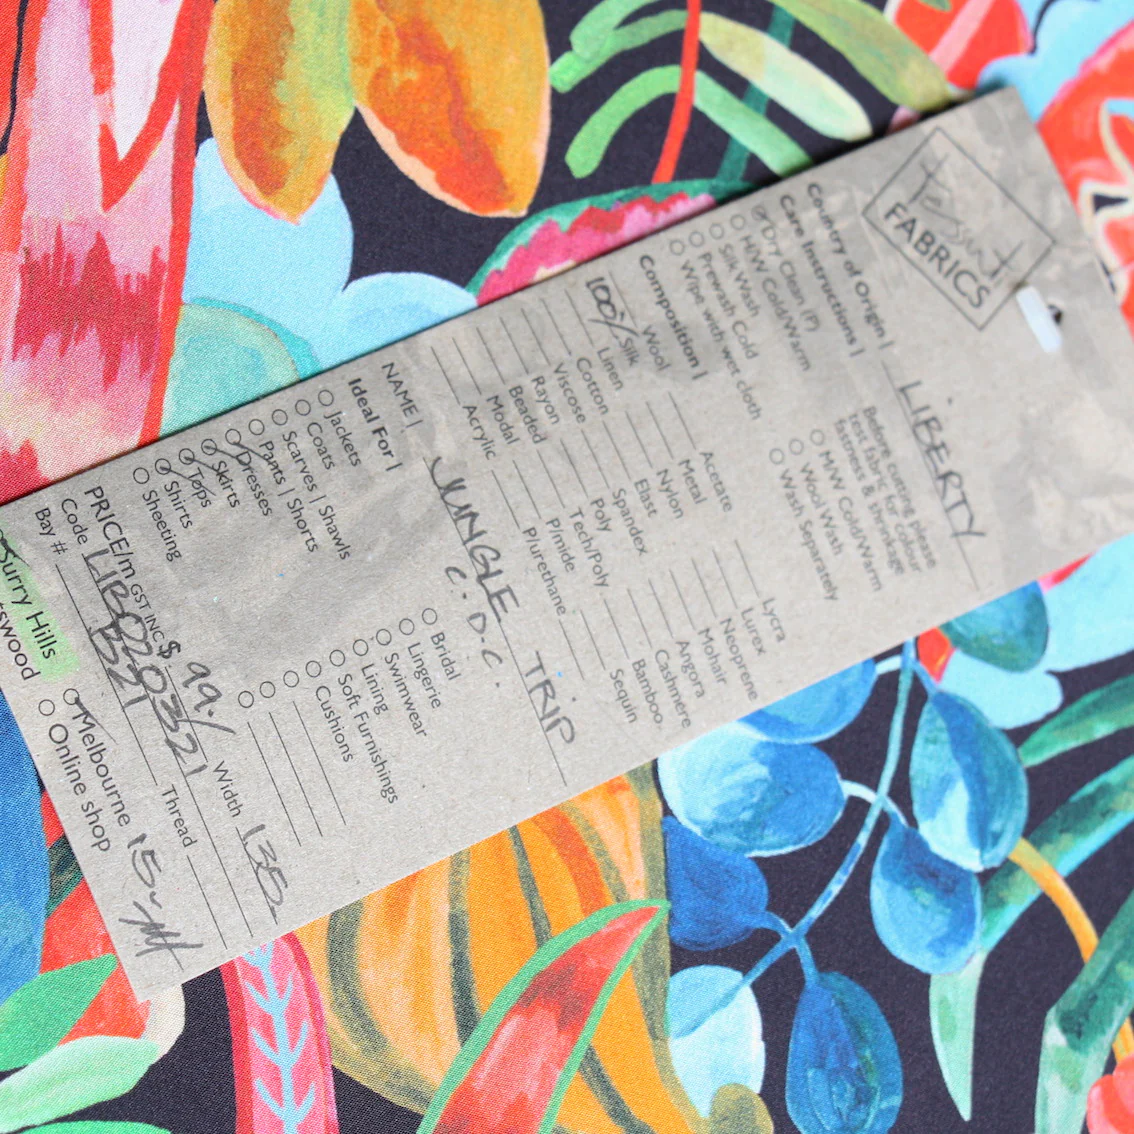 Tessuti
FABRICS
Country of Origin | LIBERTY
Care Instructions |
Before cutting please
test fabric for colour
fastness & shrinkage
Dry Clean (P)
H/W Cold/Warm
Silk Wash
Prewash Cold
Wipe with wet cloth
M/W Cold/Warm
Wool Wash
Wash Separately
Composition |
Wool
100% Silk
Linen
Cotton
Viscose
Rayon
Beaded
Modal
Acrylic
Acetate
Metal
Nylon
Elast
Spandex
Poly
Tech/Poly
P/mide
P/urethane
Lycra
Lurex
Neoprene
Mohair
Angora
Cashmere
Bamboo
Sequin
NAME | JUNGLE TRIP
C.D.C.
Ideal For |
Jackets
Coats
Scarves | Shawls
Pants | Shorts
Dresses
Skirts
Tops
Shirts
Sheeting
Bridal
Lingerie
Swimwear
Lining
Soft Furnishings
Cushions
PRICE/m GST INC $ 99./ Width 135
Code LIB0203321
Bay # B21 Thread
Surry Hills
Melbourne 15m
Online shop